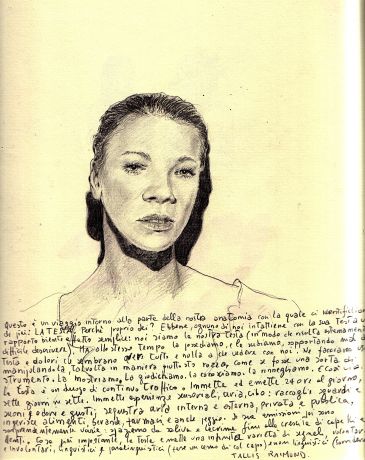 Questo è un viaggio intorno alla parte della nostra anatomia con la quale ci identifichiamo
di più: LA TESTA. Perché proprio lei? Ebbene, ognuno di noi intrattiene con la sua testa un
rapporto niente affatto semplice: noi siamo la nostra testa (in modo che risulta estremamente
difficile descrivere). Ma allo stesso tempo la possediamo, e la subiamo, sopportando mal di
testa e dolori che sembrano per tutto e nulla a che vedere con noi. Ne facciamo uso
manipolandola, talvolta in maniera piuttosto rozza, come se fosse una sorta di
strumento. La mostriamo. La giudichiamo. La coroniamo. La rinneghiamo. E così via.
La testa è un luogo di continuo traffico. Immette ed emette 24 ore al giorno,
sette giorni su sette. Immette esperienze sensoriali, aria, cibo: raccogli sguardi e
suoni, odori e gusti, registra aria interna e esterna, privata e pubblica,
ingerisce alimenti, bevande, farmaci e anche legge. Le sue emissioni poi sono
varie: spaziano da saliva a lacrime fino alla crescita di capelli e
denti. Cosa più importante, le teste emette una infinita varietà di segnali, volontari
e involontari, linguistici e paralinguistici
TALLIS RAIMOND